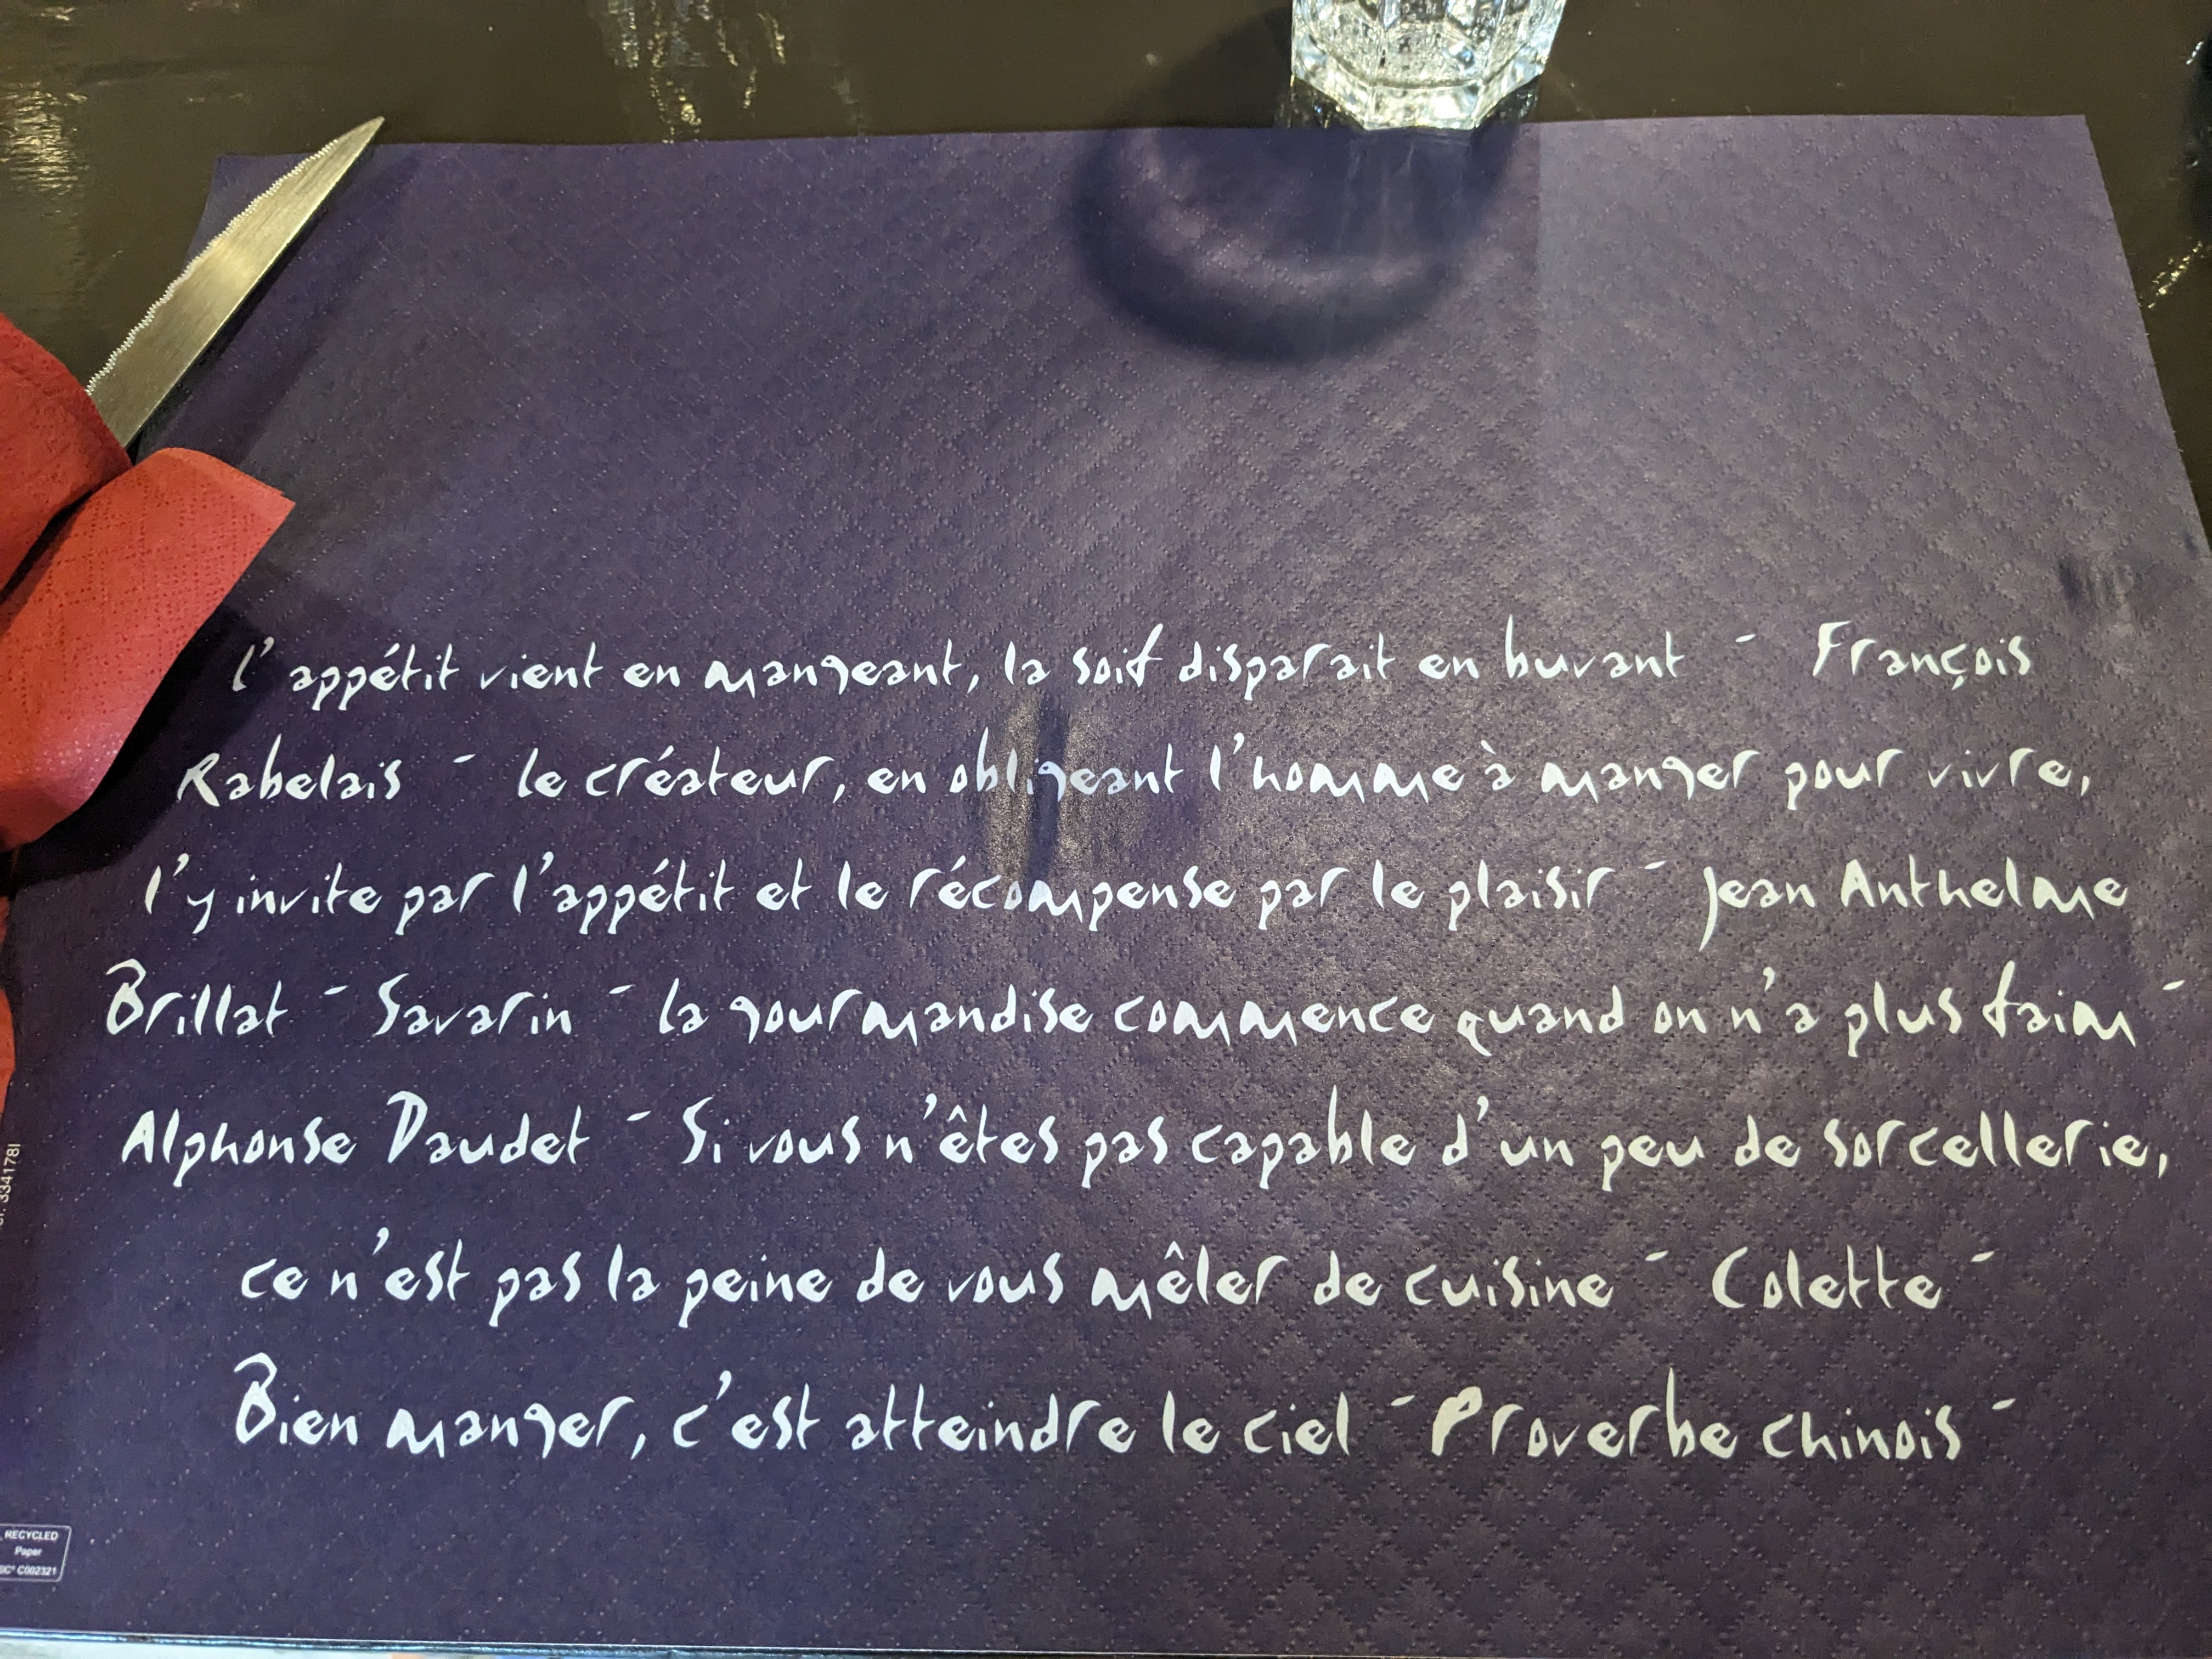 l'appétit vient en mangeant, la soif disparait en buvant - François
Rabelais - le créateur, en obligeant l'homme à manger pour vivre,
l'y invite par l'appétit et le récompense par le plaisir - Jean Anthelme
Brillat - Savarin - la gourmandise commence quand on n'a plus faim -
Alphonse Daudet - Si vous n'êtes pas capable d'un peu de sorcellerie,
ce n'est pas la peine de vous mêler de cuisine - Colette -
Bien manger, c'est atteindre le ciel - Proverbe chinois -
334178
RECYCLED
Paper
C002321